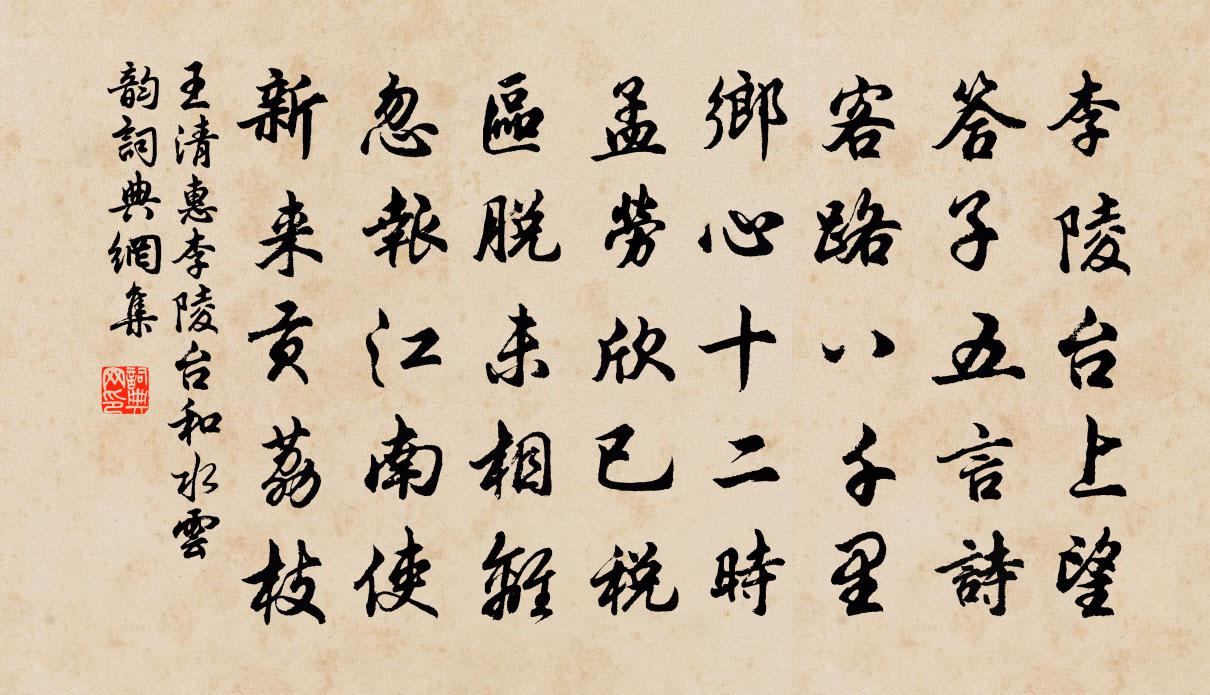 李陵台上望
答子五言詩
客路八千里
鄉心十二時
孟勞欣已稅
區脱未相離
忽報江南使
新来貢荔枝
王清惠李陵台和水雲
韵詞典網集
詞典网印